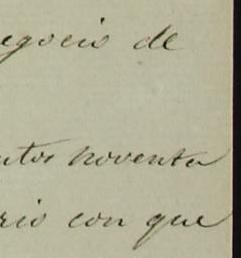 egocio de
ntos noventa
rio con que